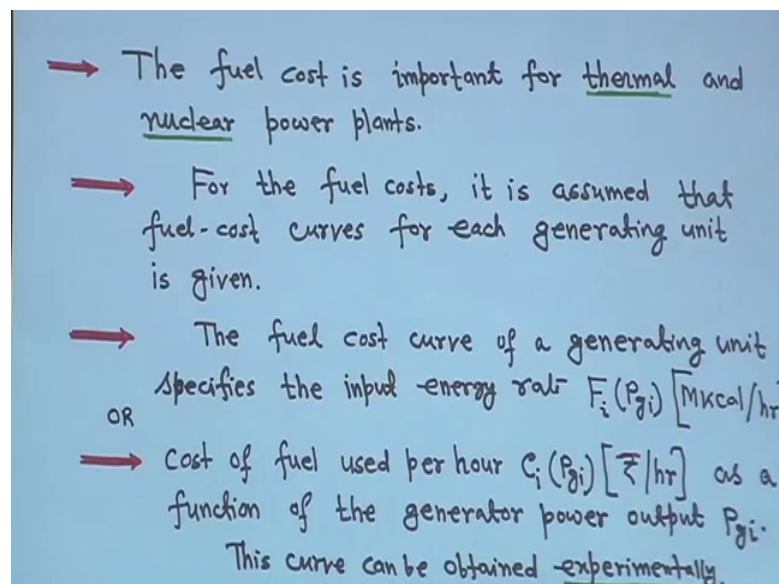 The fuel cost is important for thermal and
nuclear power plants.
For the fuel costs, it is assumed that
fuel-cost curves for each generating unit
is given.
The fuel cost curve of a generating unit
specifies the input energy rate F_i(P_gi) [MKcal/hr
OR
cost of fuel used per hour C_i(P_gi) [₹/hr] as a
function of the generator power output P_gi.
This curve can be obtained experimentally.